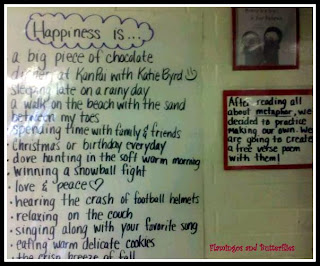 Happiness is...
a big piece of chocolate
dinner at KanPai with Katie Byrd
sleeping late on a rainy day
a walk on the beach with the sand
between my toes
spending time with family & friends
Christmas or birthday everyday
• dove hunting in the soft warm morning
• winning a snowball fight
• love & peace
• hearing the crash of football helmets
• relaxing on the couch
• singing along with your favorite song
• eating warm delicate cookies
• the crisp breeze of fall
After reading all
about metaphor, we
decided to practice
making our own. We
are going to create
a free verse poem
with them!
Flamingos and Butterflies